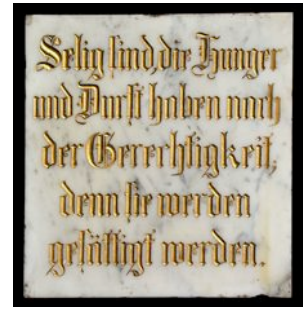 Selig sind, die Hunger
und Durst haben nach
der Gerechtigkeit,
denn sie werden
gesättigt werden.